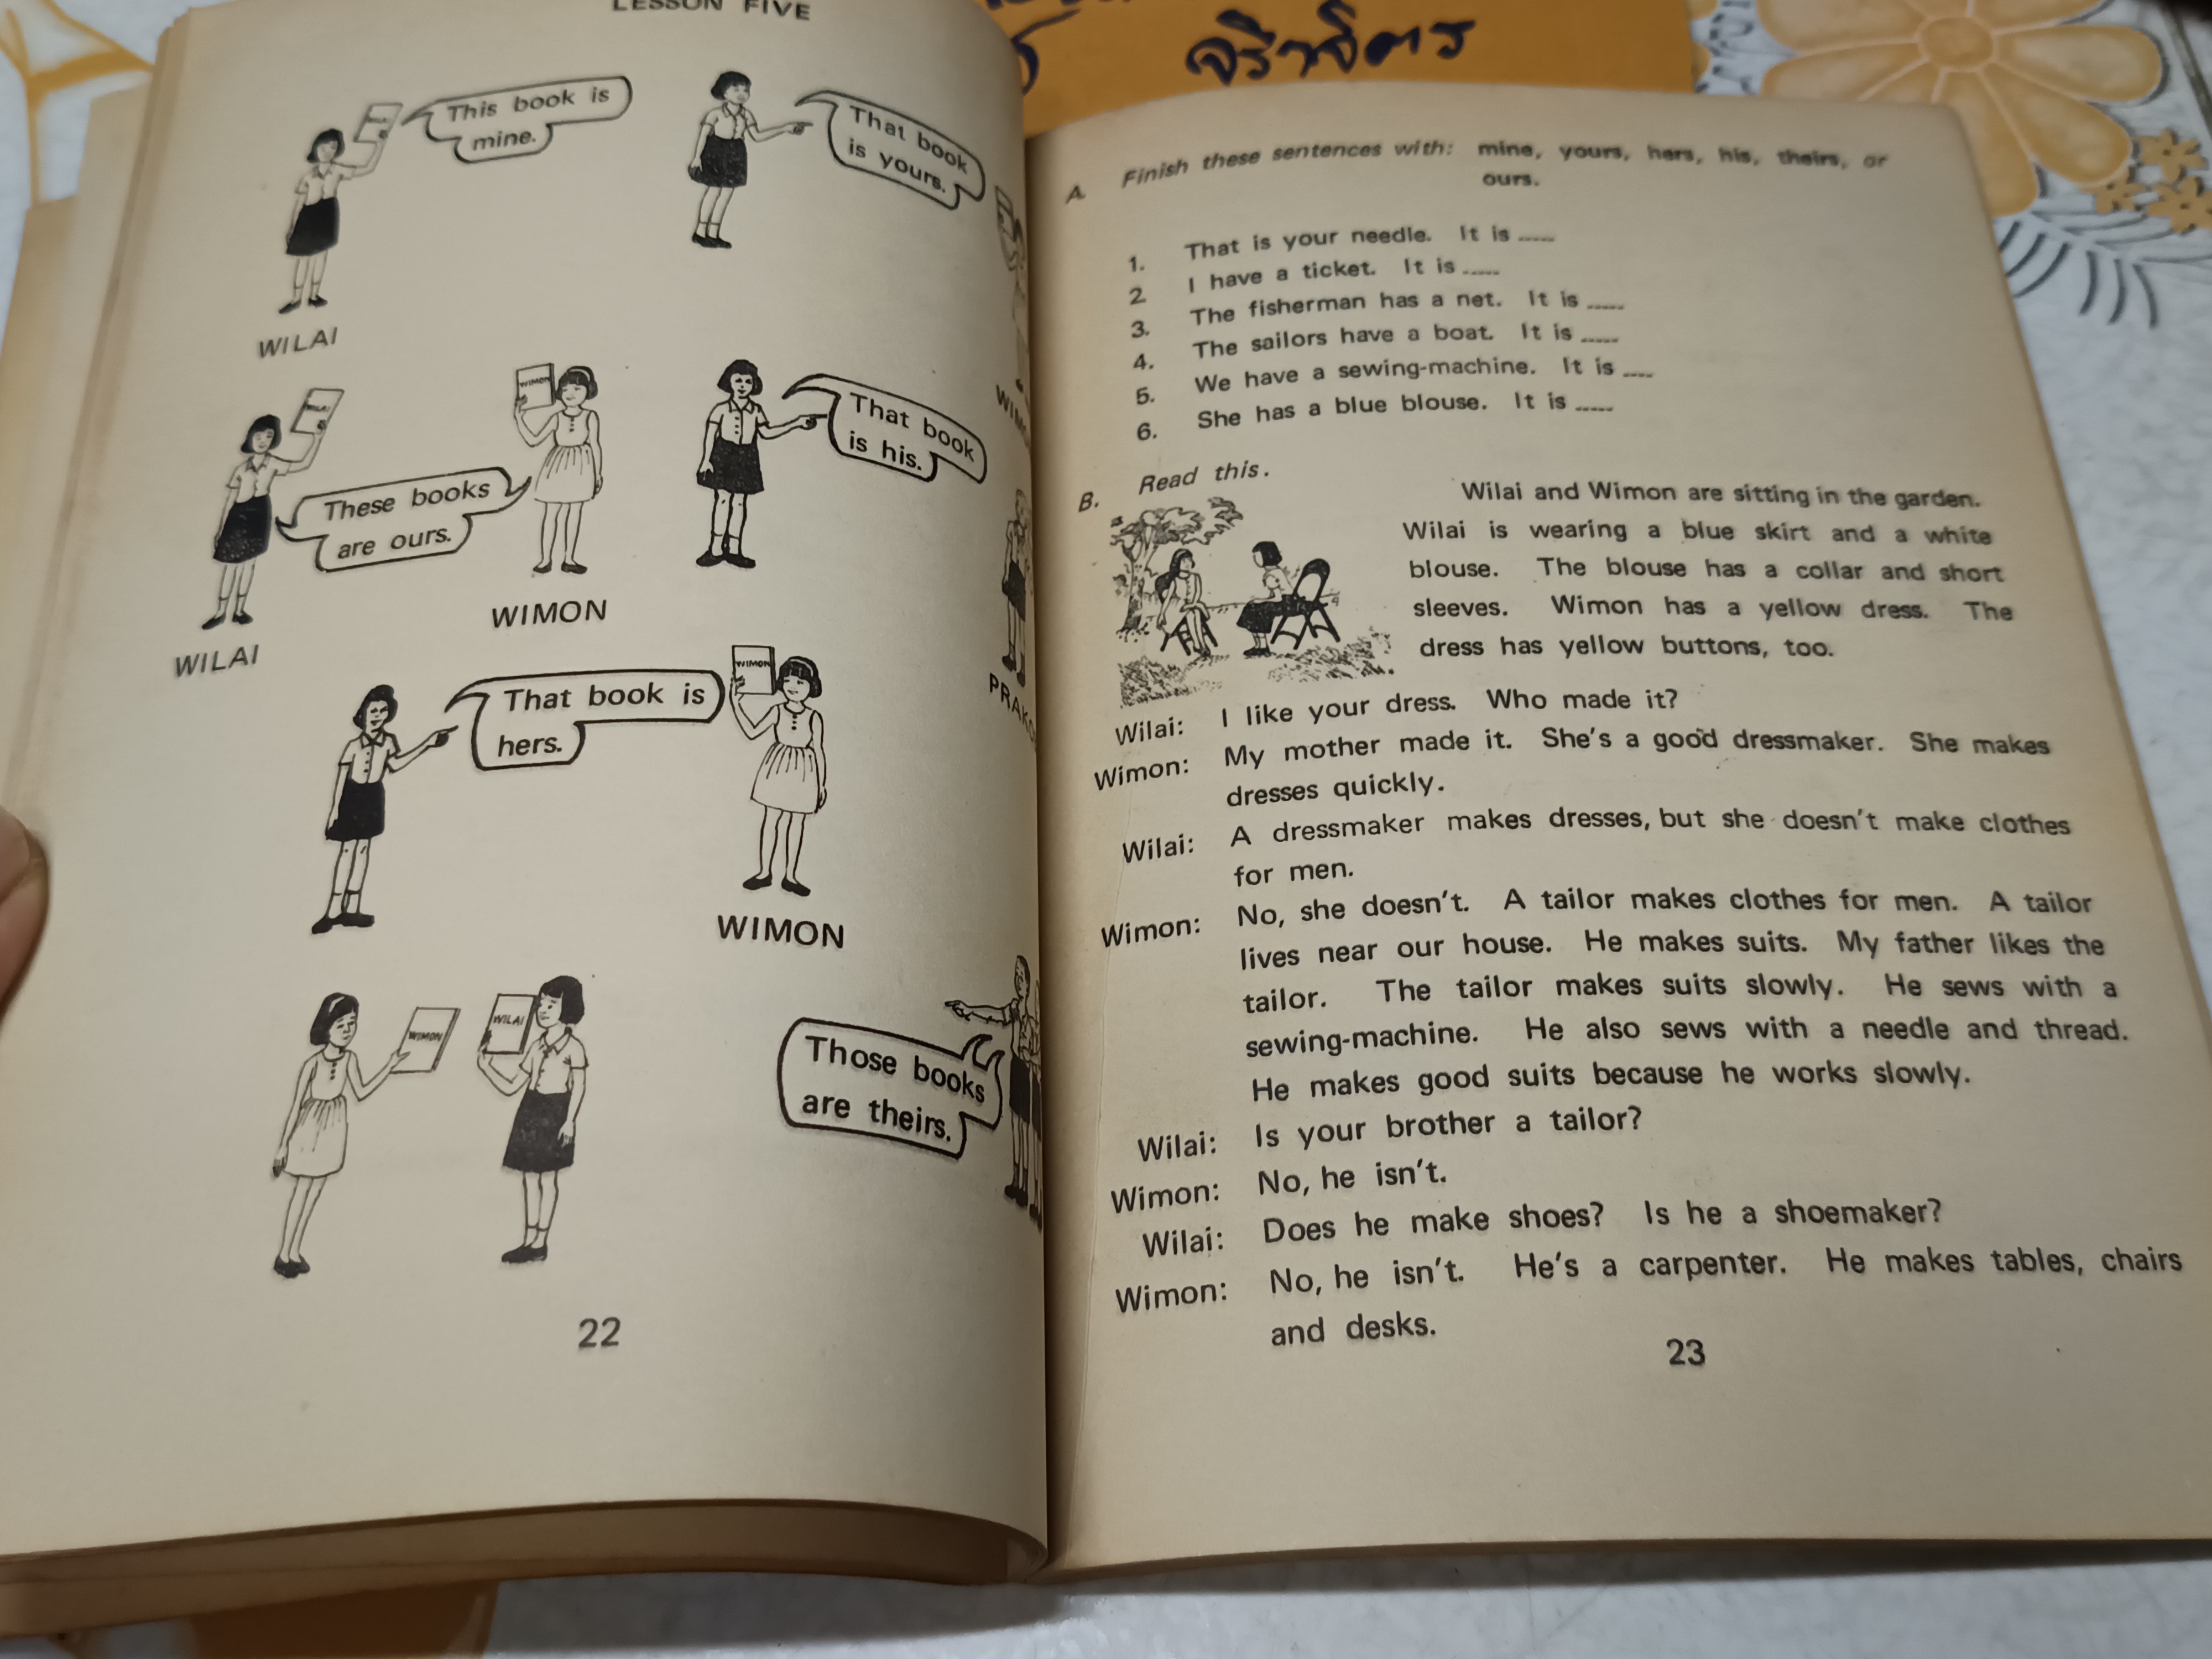 LESSON FIVE
This book is
mine.
That book
is yours.
WILAI
WILAI
WIMON
These books
are ours.
That book
is his.
WILAI
WIMON
That book is
hers.
WIMON
WIMON
WIMON
WILAI
Those books
are theirs.
22
A. Finish these sentences with: mine, yours, hers, his, theirs, or
ours.
1. That is your needle. It is .....
2. I have a ticket. It is .....
3. The fisherman has a net. It is .....
4. The sailors have a boat. It is .....
5. We have a sewing-machine. It is ....
6. She has a blue blouse. It is .....
B. Read this.
Wilai and Wimon are sitting in the garden.
Wilai is wearing a blue skirt and a white
blouse. The blouse has a collar and short
sleeves. Wimon has a yellow dress. The
dress has yellow buttons, too.
Wilai: I like your dress. Who made it?
Wimon: My mother made it. She's a good dressmaker. She makes
dresses quickly.
Wilai: A dressmaker makes dresses, but she doesn't make clothes
for men.
Wimon: No, she doesn't. A tailor makes clothes for men. A tailor
lives near our house. He makes suits. My father likes the
tailor. The tailor makes suits slowly. He sews with a
sewing-machine. He also sews with a needle and thread.
He makes good suits because he works slowly.
Wilai: Is your brother a tailor?
Wimon: No, he isn't.
Wilai: Does he make shoes? Is he a shoemaker?
Wimon: No, he isn't. He's a carpenter. He makes tables, chairs
and desks.
23